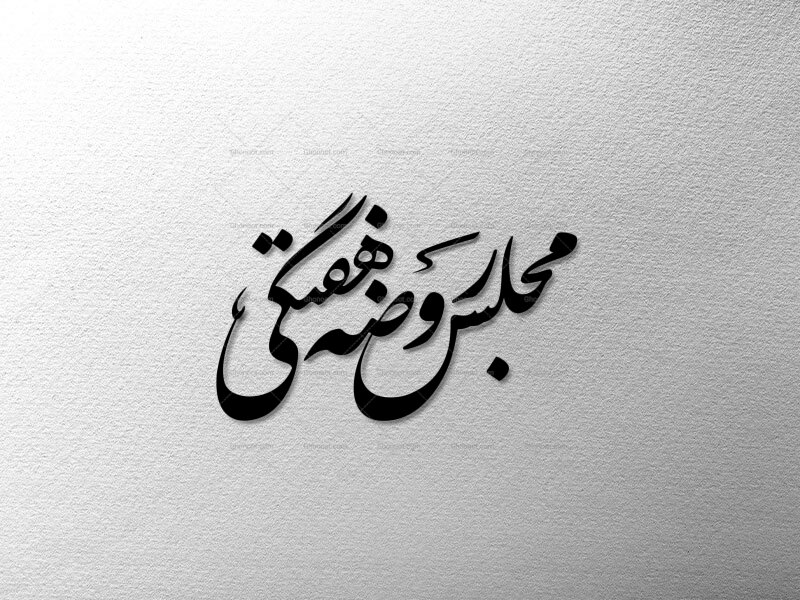 مجلس روضه هفتگی